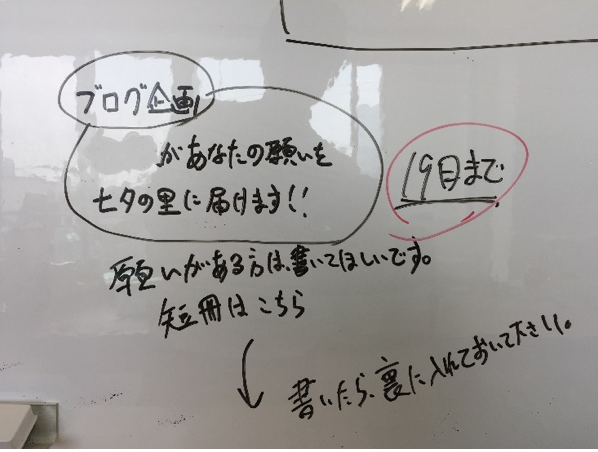 ブログ企画
があなたの願いを
七夕の里に届けます!!
19日まで
願いがある方は、書いてほしいです。
短冊はこちら
書いたら、裏に入れておいて下さい。